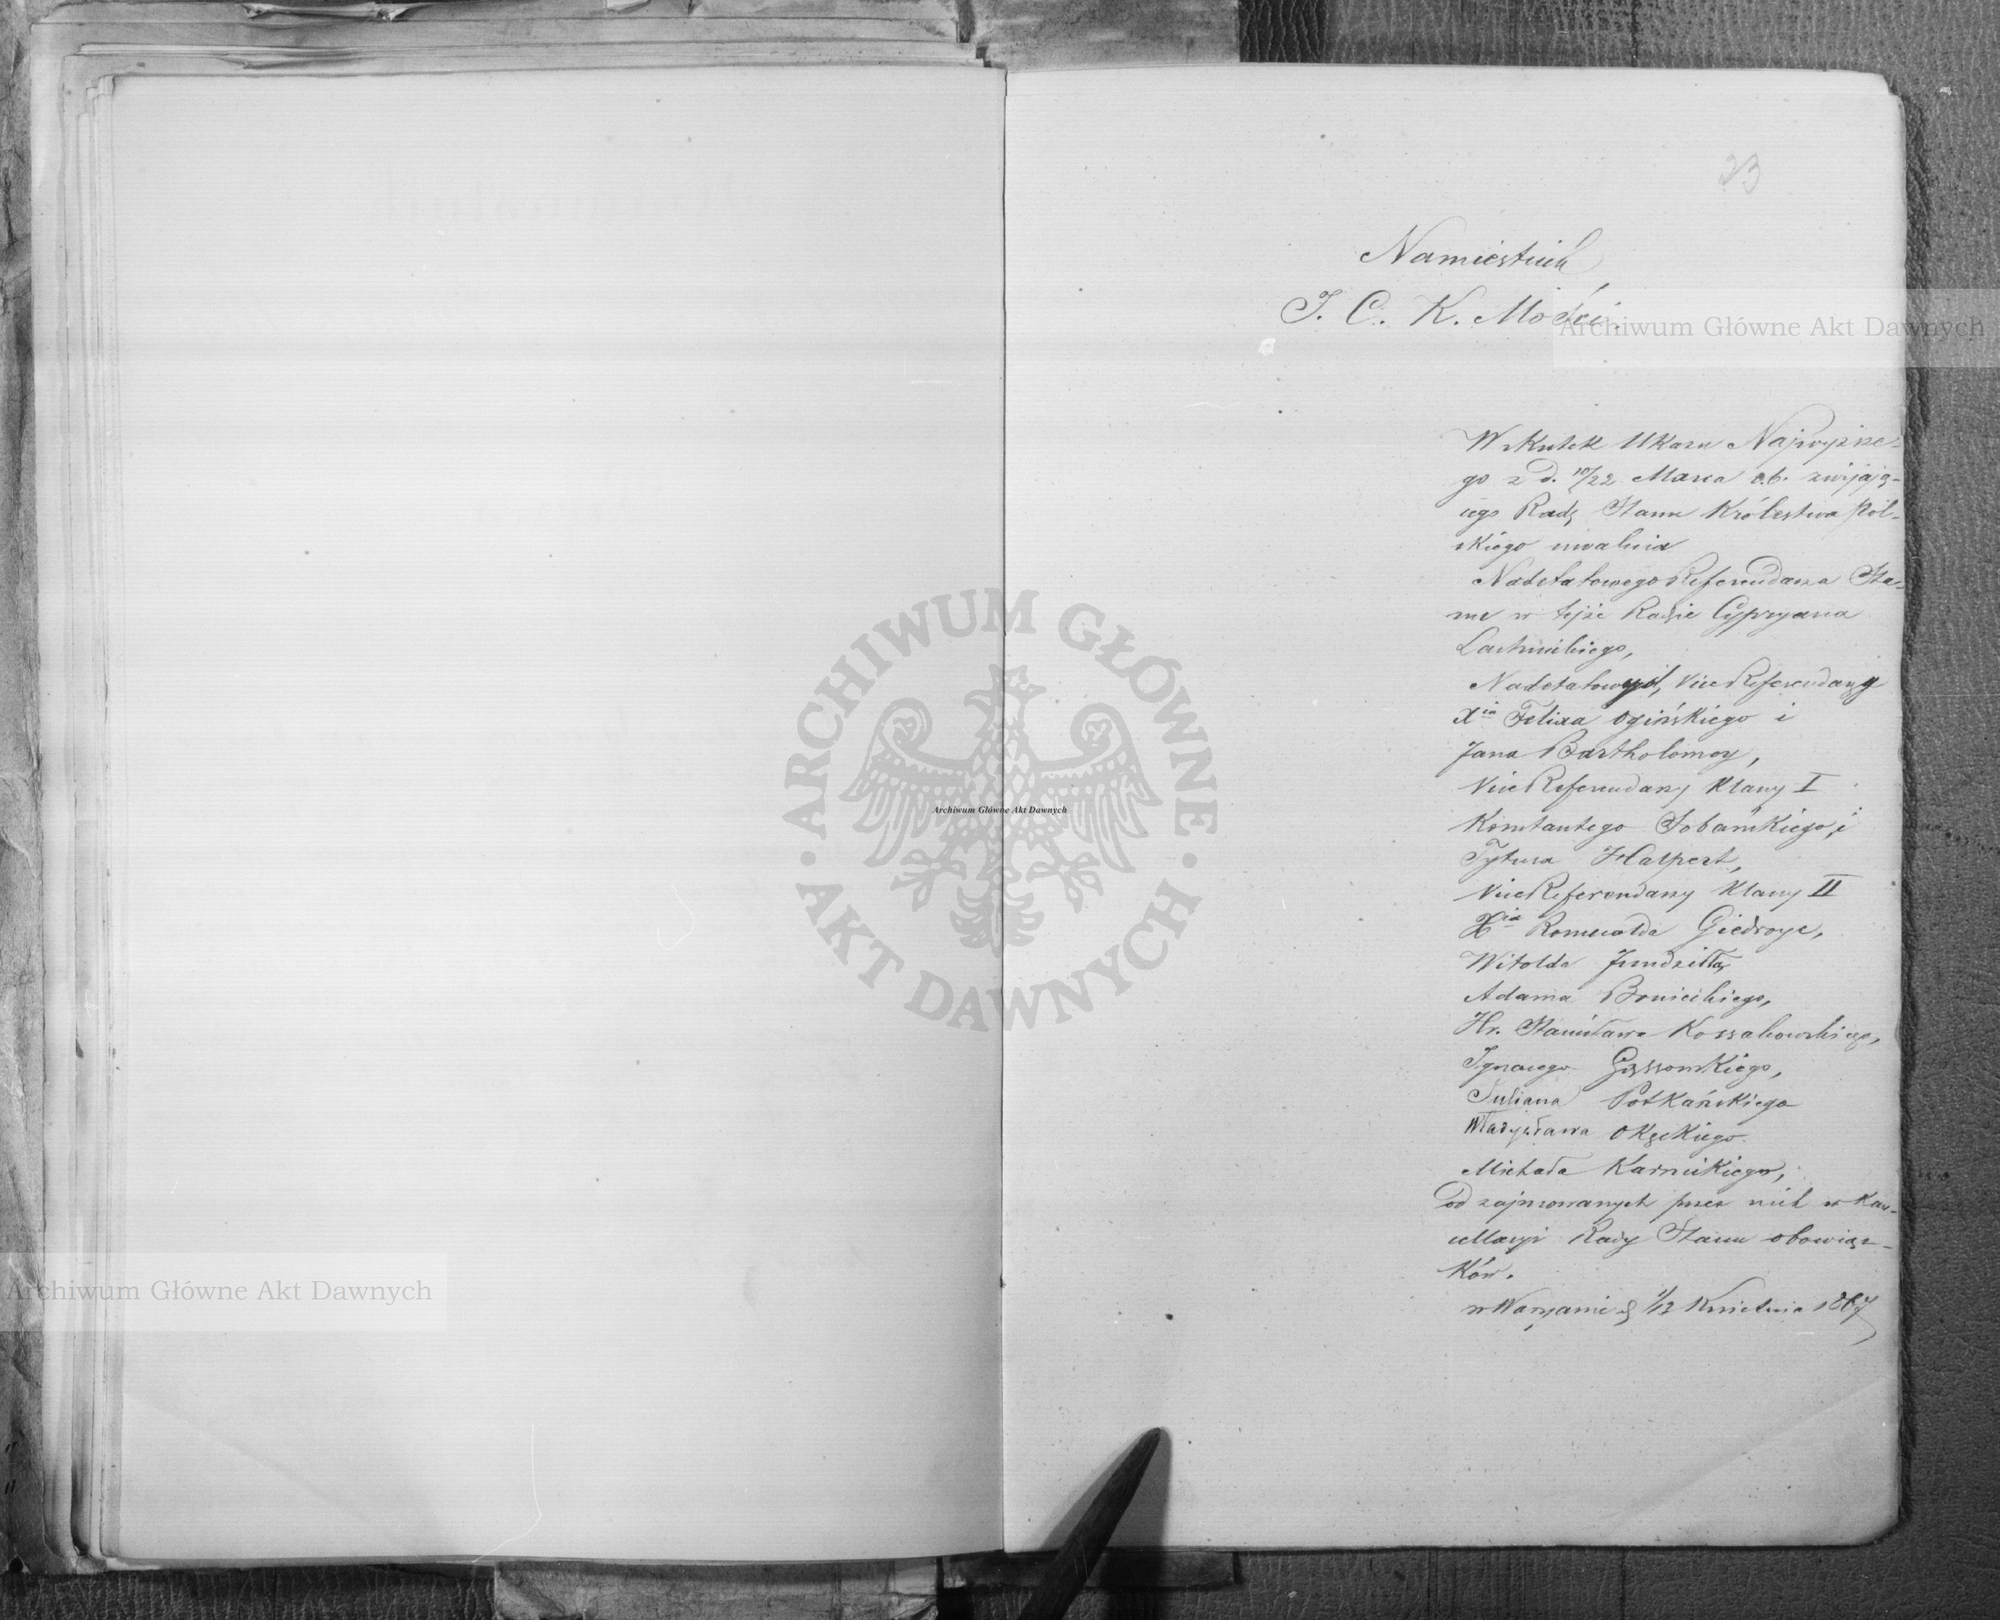 23
Namiestnik
J. C. K. Mości.
W skutek Ukazu Najwyższe-
go z d. 10/22 Marca r.b. zwijają-
cego Radę Stanu Królestwa Pol-
skiego uwalnia
Nadetatowego Referendarza Sta-
nu w tejże Radzie Cypryana
Lachnickiego,
Nadetatowych Vice Referendarzy
Xia Felixa Ogińskiego i
Jana Bartholomey,
Vice Referendarzy Klassy I
Konstantego Sobańskiego, i
Tytusa Halpert,
Vice Referendarzy Klassy II
Xia Romualda Giedroyc,
Witolda Jundziłła,
Adama Bronickiego,
Hr. Stanisława Kossakowskiego,
Ignacego
Juliana Potkańskiego
Władysława Okęckiego
Michała Karnickiego,
od zajmowanych przez nich w Kan-
cellaryi Rady Stanu obowiąz-
ków.
w Warszawie d. 1/13 Kwietnia 1867
Archiwum Główne Akt Dawnych
Archiwum Główne Akt Dawnych
Archiwum Główne Akt Dawnych
ARCHIWUM GŁÓWNE
AKT DAWNYCH